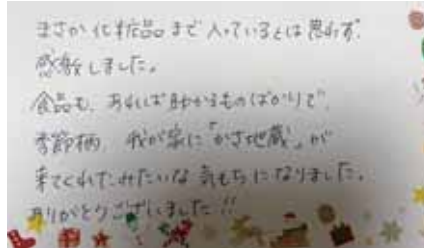 まさか化粧品まで入っているとは思わず、
感激しました。
食品も、あれば助かるものばかりで、
季節柄、我が家に「かさ地蔵」が
来てくれたみたいな気もちになりました。
ありがとうございました!!